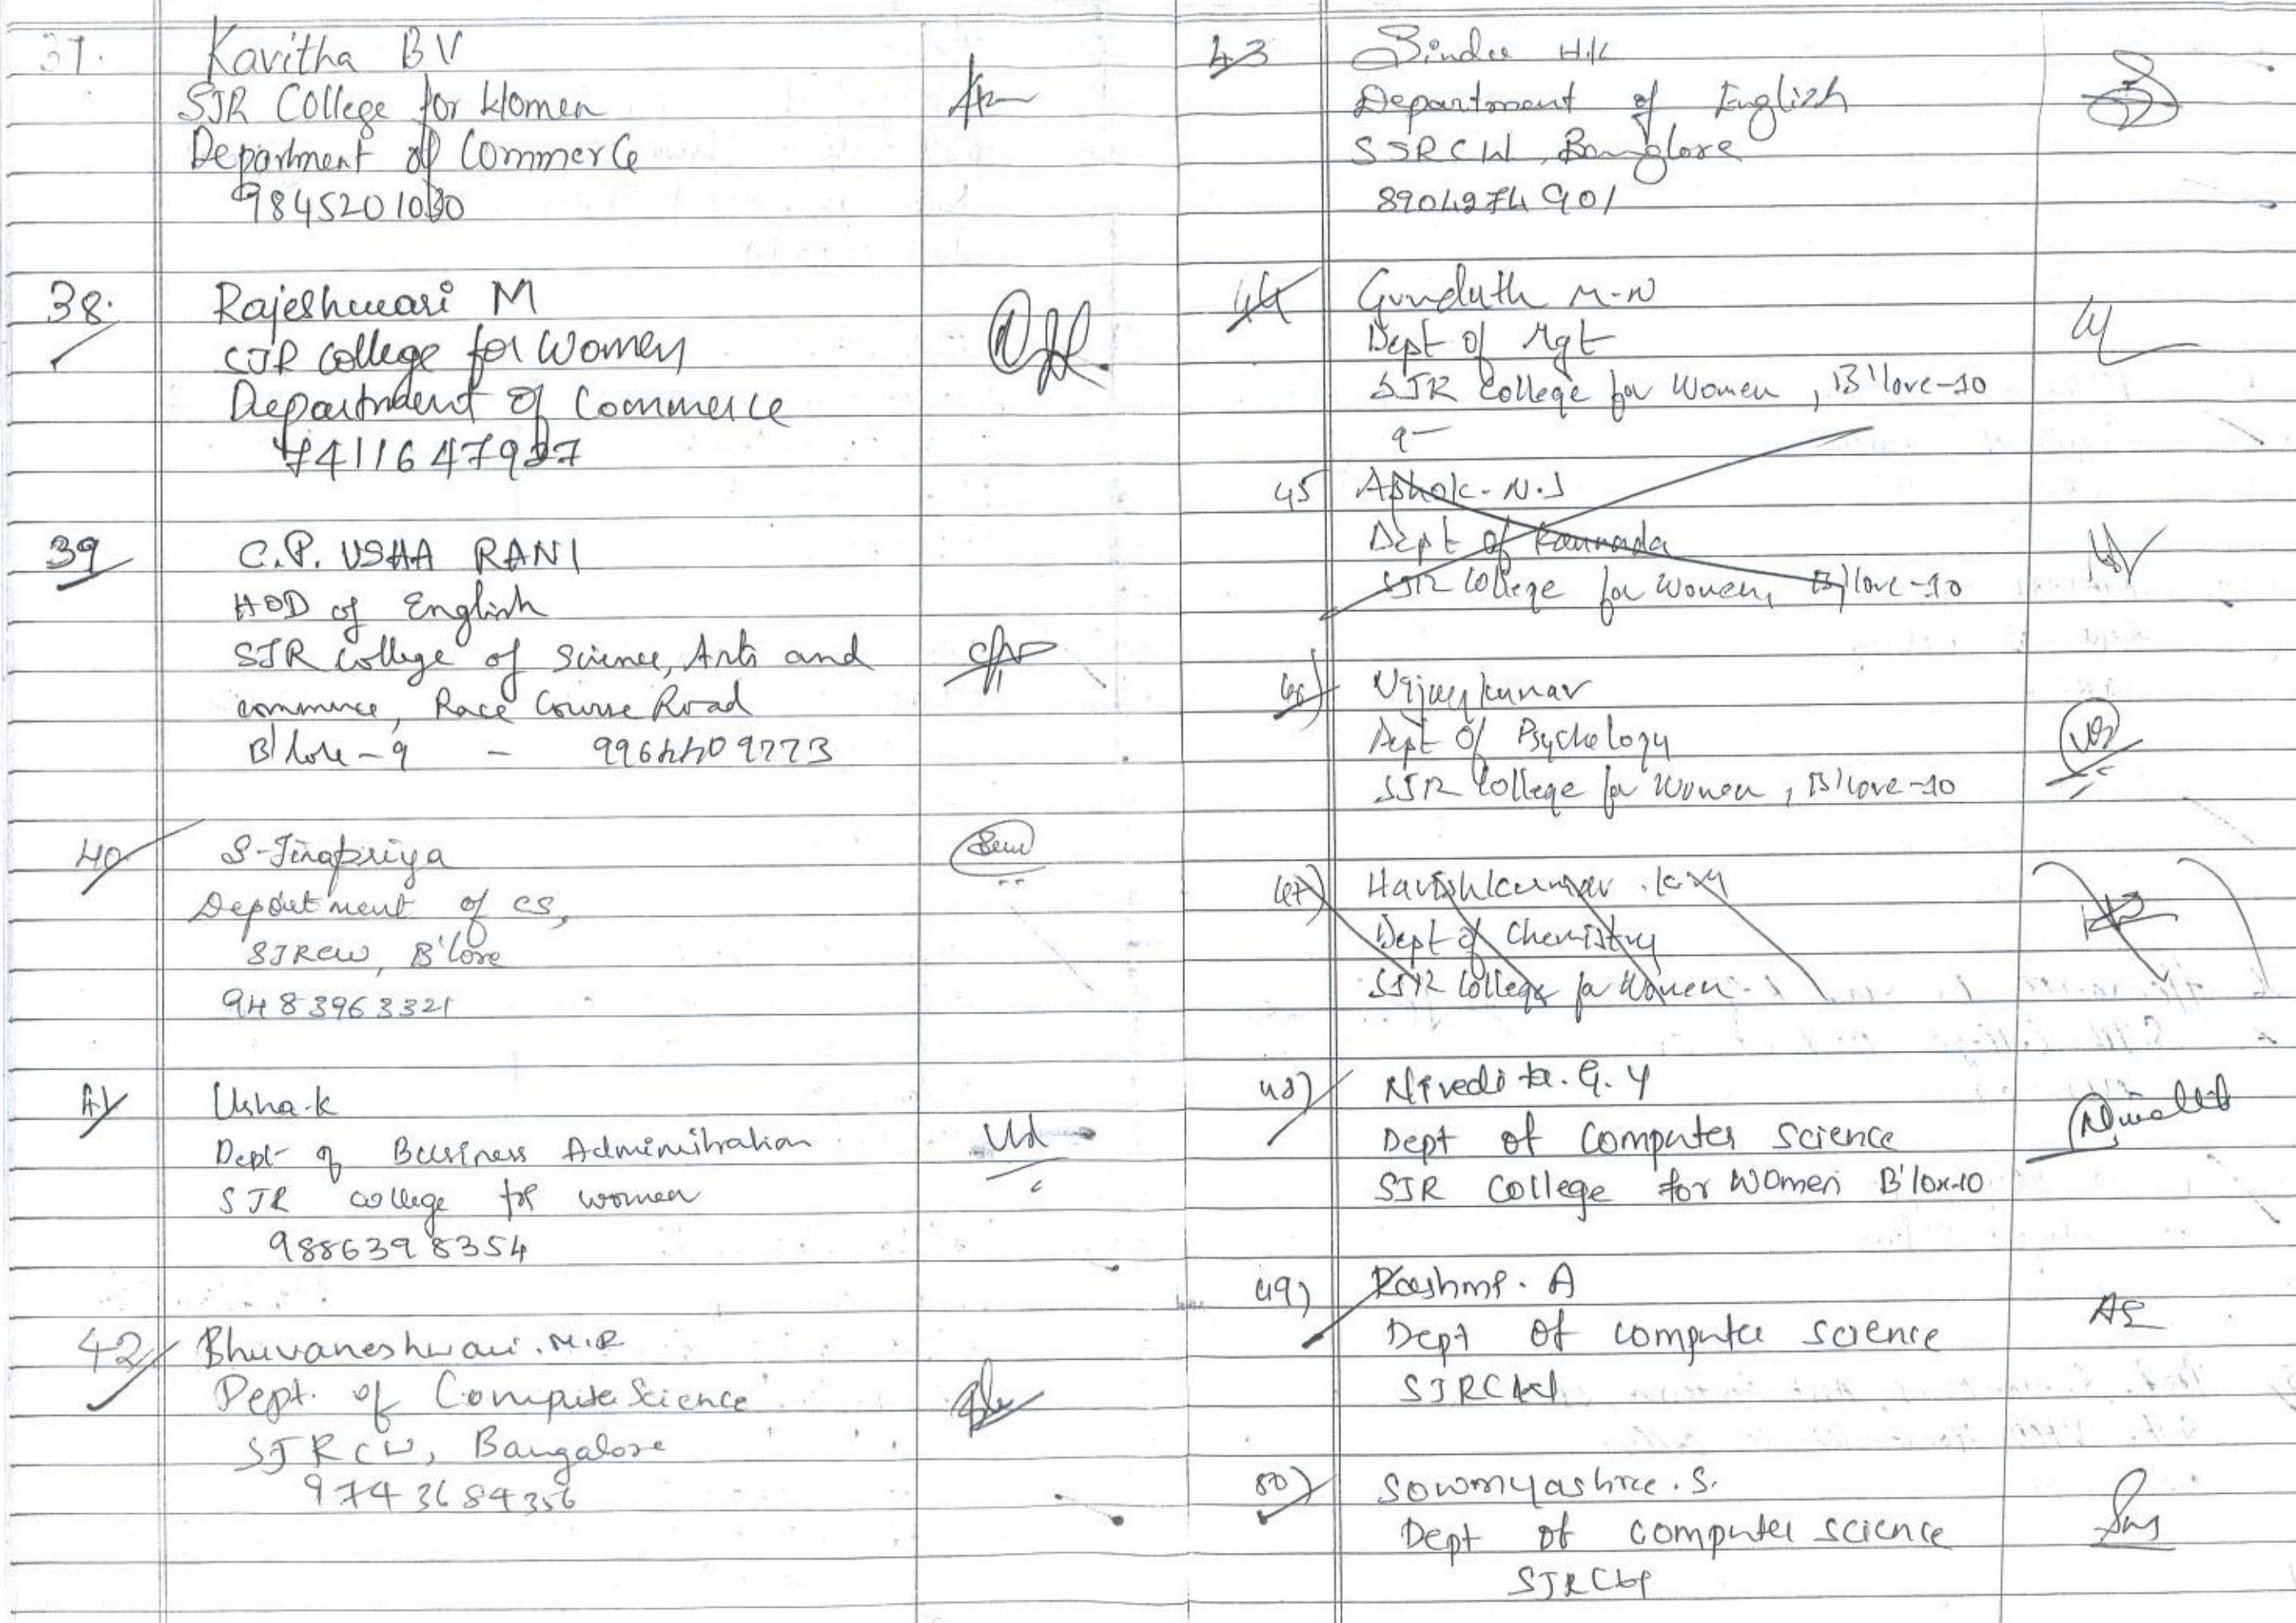 37.
Kavitha B V
SJR College for Women
Department of Commerce
9845201030
38.
Rajeshwari M
SJR College for Women
Department of Commerce
7411647937
39
C.P. USHA RANI
HOD of English
SJR College of Science, Arts and
commerce, Race Course Road
B'lore-9 - 9964409773
40
S-Jinapriya
Department of CS,
SJRCW, B'lore
9483963321
41
Usha.k
Dept of Business Administration
SJR college for women
9886398354
42
Bhuvaneshwari.M.R
Dept. of Compute Science
SJRCW, Bangalore
9743684356
43
Bindu H.K
Department of English
SJRCW, Banglore
8904974901
44
Gundath M-N
Dept of Mgt
SJR College for Women, B'lore-10
9-
45
Ashok. N.J
Dept of Kannada
SJR College for Women, B'lore-10
46)
Vijaykumar
Dept of Psychology
SJR College for Women, B'lore-10
47)
Harishkumar .K.M
Dept of Chemistry
SJR College for Women
48)
Nivedita. G. Y
Dept of Computer Science
SJR College for Women B'lore-10
49)
Rashmi. A
Dept of computer science
SJRCW
50)
Sowmyashree. S.
Dept of computer science
SJRCW